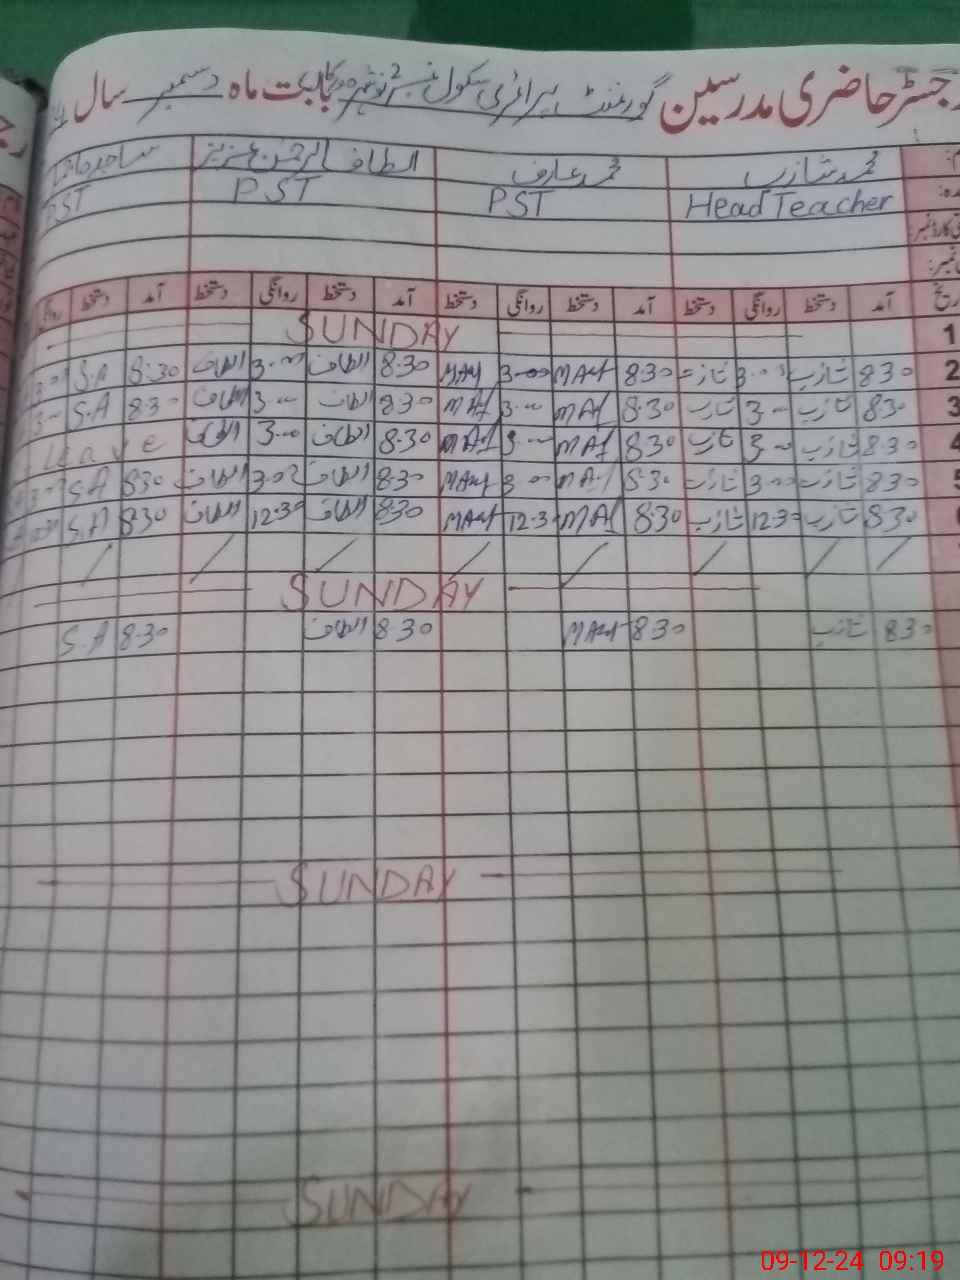 رجسٹر حاضری مدرسین گورنمنٹ پرائمری سکول نمبر 2 بابت ماہ دسمبر سال
محمد شازب محمد عارف الطاف الرحمٰن عزیز ساجد
Head Teacher PST PST PST
آمد دستخط روانگی دستخط آمد دستخط روانگی دستخط آمد دستخط روانگی دستخط آمد دستخط
1 SUNDAY
2 8:30 شازب 3:00 شازب 8:30 MAuf 3:00 MAuf 8:30 الطاف 3:00 الطاف 8:30 S.A
3 8:30 شازب 3:00 شازب 8:30 MAf 3:00 MAf 8:30 الطاف 3:00 الطاف 8:30 S.A
4 8:30 شازب 3:00 شازب 8:30 MAf 3:00 MAf 8:30 الطاف 3:00 الطاف Leave
5 8:30 شازب 3:00 شازب 8:30 MAf 3:00 MAuf 8:30 الطاف 3:00 الطاف 8:30 S.A
8:30 شازب 12:30 شازب 8:30 MAf 12:30 MAuf 8:30 الطاف 12:30 الطاف 8:30 S.A
SUNDAY
8:30 شازب 8:30 MAuf 8:30 الطاف 8:30 S.A
SUNDAY
SUNDAY
09-12-24 09:19